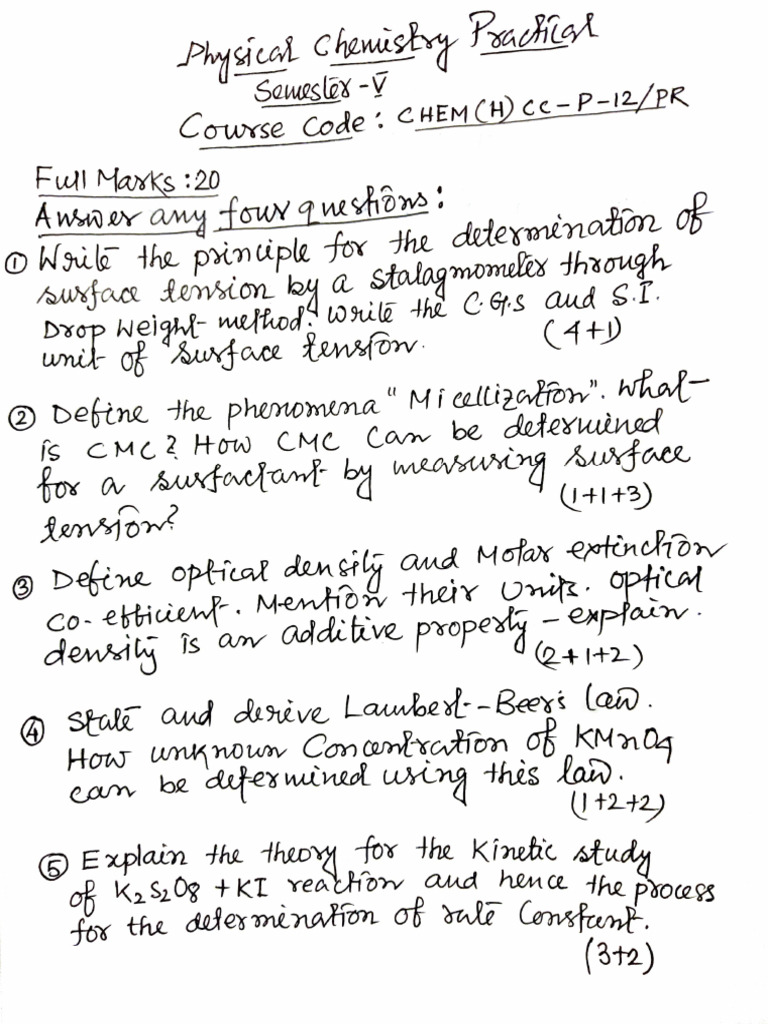 Physical Chemistry Practical
Semester-V
Course Code: CHEM(H)CC-P-12/PR
Full Marks:20
Answer any four questions:
① Write the principle for the determination of
surface tension by a stalagmometer through
Drop Weight method. Write the C.G.S and S.I.
unit of surface tension. (4+1)
② Define the phenomena "Micellization". What
is CMC? How CMC can be determined
for a surfactant by measuring surface
tension? (1+1+3)
③ Define optical density and Molar extinction
co-efficient. Mention their Units. Optical
density is an additive property - explain.
(2+1+2)
④ State and derive Lambert-Beer's law.
How unknown Concentration of KMnO4
can be determined using this law.
(1+2+2)
⑤ Explain the theory for the Kinetic study
of K2S2O8 + KI reaction and hence the process
for the determination of rate Constant.
(3+2)